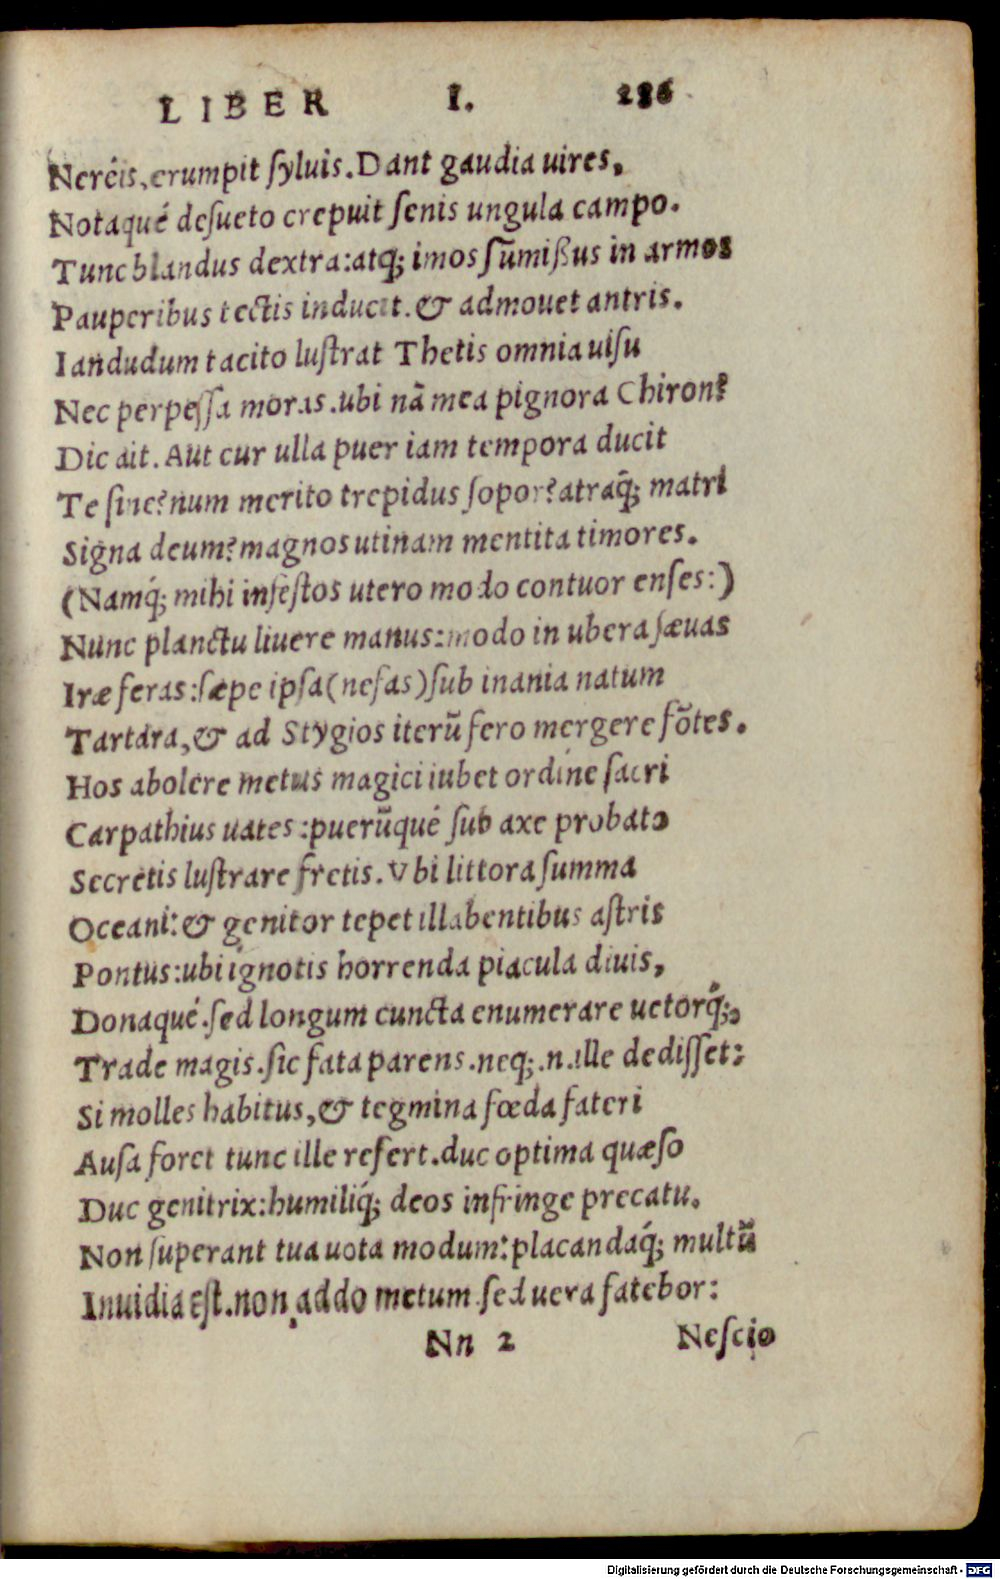 LIBER I. 286
Neréis, erumpit ſyluis. Dant gaudia uires,
Notaqué deſueto crepuit ſenis ungula campo.
Tunc blandus dextra: atq; imos ſūmiſſus in armos
Pauperibus tectis inducit. & admouet antris.
Iandudum tacito luſtrat Thetis omnia uiſu
Nec perpeſſa moras. ubi nā mea pignora Chiron?
Dic ait. Aut cur ulla puer iam tempora ducit
Te ſine? num merito trepidus ſopor? atraq́; matri
Signa deum? magnos utinam mentita timores.
(Namq́; mihi infeſtos utero modo contuor enſes:)
Nunc planctu liuere manus: modo in ubera ſæuas
Iræ feras: ſæpe ipſa (nefas) ſub inania natum
Tartara, & ad Stygios iterū fero mergere fōtes.
Hos abolere metus magici iubet ordine ſacri
Carpathius uates: puerūqué ſub axe probato
Secretis luſtrare fretis. Vbi littora ſumma
Oceani: & genitor tepet illabentibus aſtris
Pontus: ubi ignotis horrenda piacula diuis,
Donaqué. ſed longum cuncta enumerare uetorq́;,
Trade magis. ſic fata parens. neq; .n. ille dediſſet:
Si molles habitus, & tegmina fœda fateri
Auſa foret tunc ille refert. duc optima quæſo
Duc genitrix: humiliq́; deos infringe precatu.
Non ſuperant tua uota modum: placandaq́; multū
Inuidia eſt. non addo metum ſed uera fatebor:
Nn 2 Neſcio
Digitalisierung gefördert durch die Deutsche Forschungsgemeinschaft - DFG